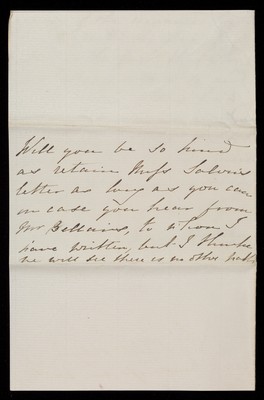 Will you be so kind
as retain Miss Salvin's
letter as long as you can
in case you hear from
Mr Bellairs, to whom I
have written, but I think
he will see there is no other